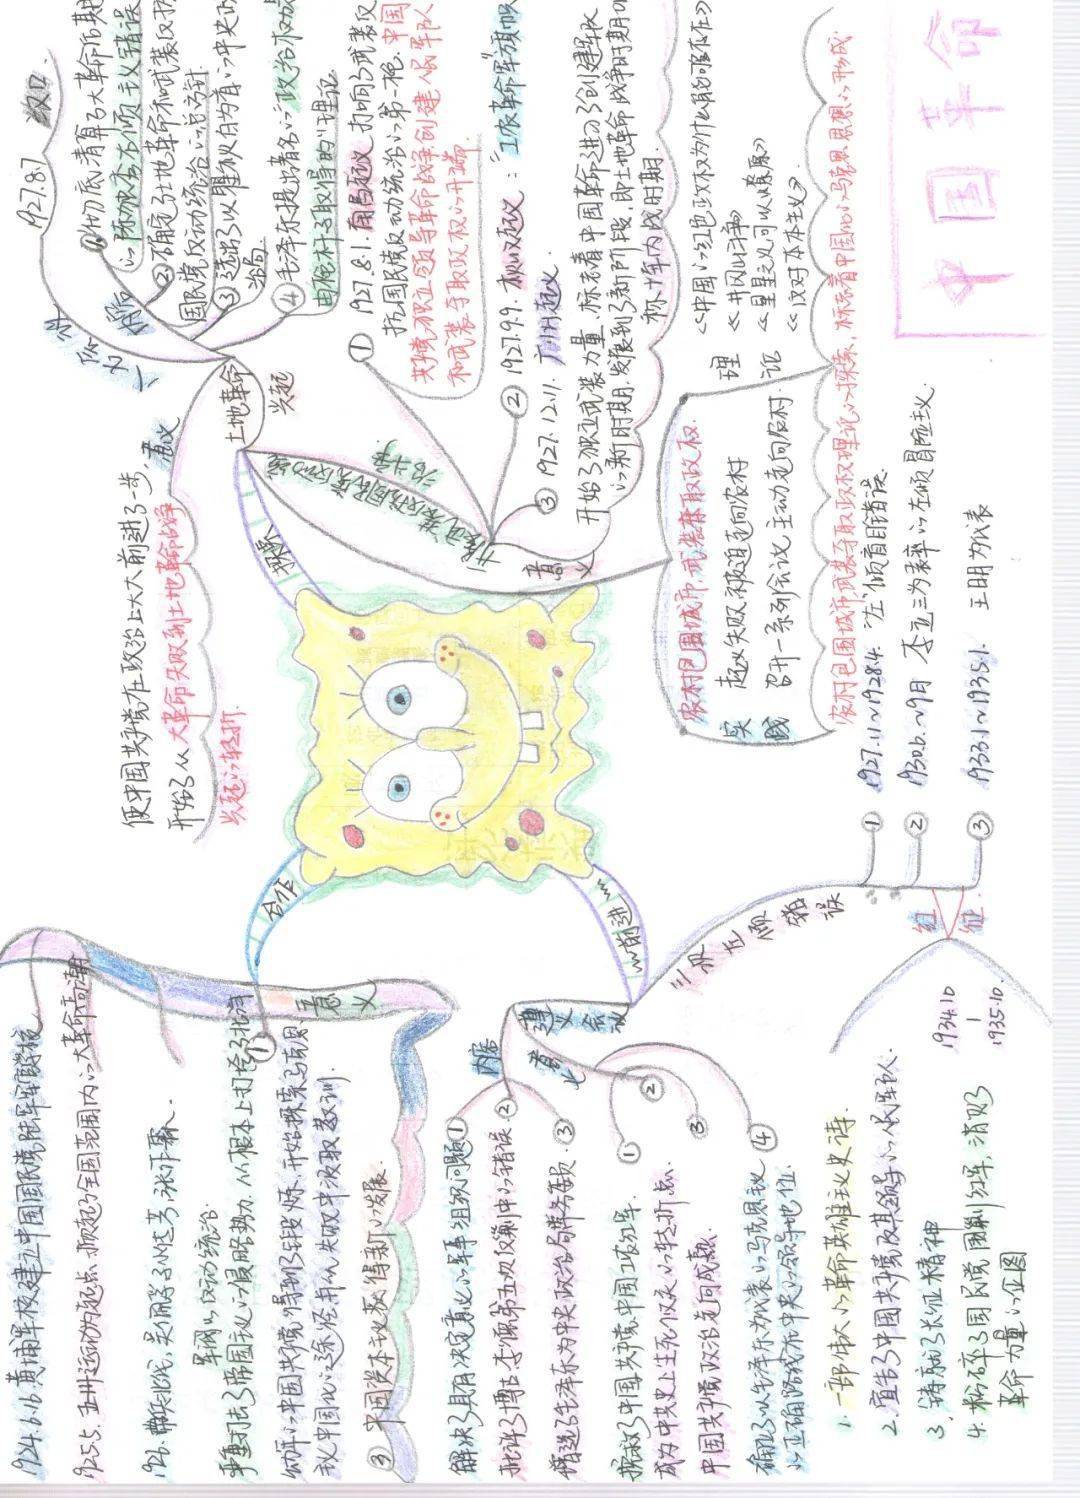 中国革命
合作
1924.6.16.黄埔军校建立中国国民党陆军军官学校
1925.5.五卅运动为起点,掀起了全国范围内的大革命高潮
1926.北伐,吴佩孚,孙传芳,张作霖.
意义
①
军阀的反动统治
重打击了帝国主义
幼年的中国共产党得到了锻炼,开始探索马克思
主义中国化的途径并从失败中汲取教训.
③
中国资本主义获得新的发展.
探索
土地革命
兴起
意义
使中国共产党在政治上大大前进了一步,
开始了从大革命失败到土地革命战争
兴起的转折.
1927.8.7
汉口
①彻底清算了大革命后期
的陈独秀右倾主义错误
②确定了土地革命和武装反抗
国民党反动统治的总方针
③选出了以瞿秋白为首的中央政
治局.
④毛泽东提出著名的政治权
由枪杆子取得的"理论
①1927.8.1.南昌起义 打响了武装反
抗国民党反动统治的第一枪,中国
共产党独立领导革命战争,创建人民军队
和武装夺取政权的开端
②1927.9.9.秋收起义:"工农革命军"旗帜
③1927.12.11.广州起义.
意义
开始了独立武装力量,标志着中国革命进入了创建红军
的新时期.发展到了新阶段,即土地革命战争时期
称十年内战时期.
农村包围城市,武装夺取政权.
理论
《中国的红色政权为什么能够存在》
《井冈山斗争》
《星星之火可以燎原》
《反对本本主义》
实践
起义失败,被迫走向农村
召开一系列会议,主动走向农村.
农村包围城市武装夺取政权理论的探索,标志着中国化的马克思主义的形成.
前进
三次左倾错误
①1927.11~1928.4. "左"倾盲目错误
②1930.6.~9月 李立三为代表的左倾冒险主义.
③1933.1.~1935.1. 王明为代表
遵义会议
内容
解决了具有决定意义的军事组织问题①
批评了博古、李德第五次反"围剿"中的错误.②
增选了毛泽东为中央政治局常务委员.③
意义
①挽救了中国共产党,中国工农红军.
②成为中共史上生死攸关的转折点.
③中国共产党政治走向成熟
④确立了以毛泽东为代表的马克思主义
的正确路线在中央的领导地位.
长征
1934.10
—
1935.10.
1.一部伟大的革命英雄主义史诗.
2.宣告了中国共产党及其领导的人民军队.
3.铸就了长征精神
4.粉碎了国民党"围剿"红军,消灭
革命力量的企图